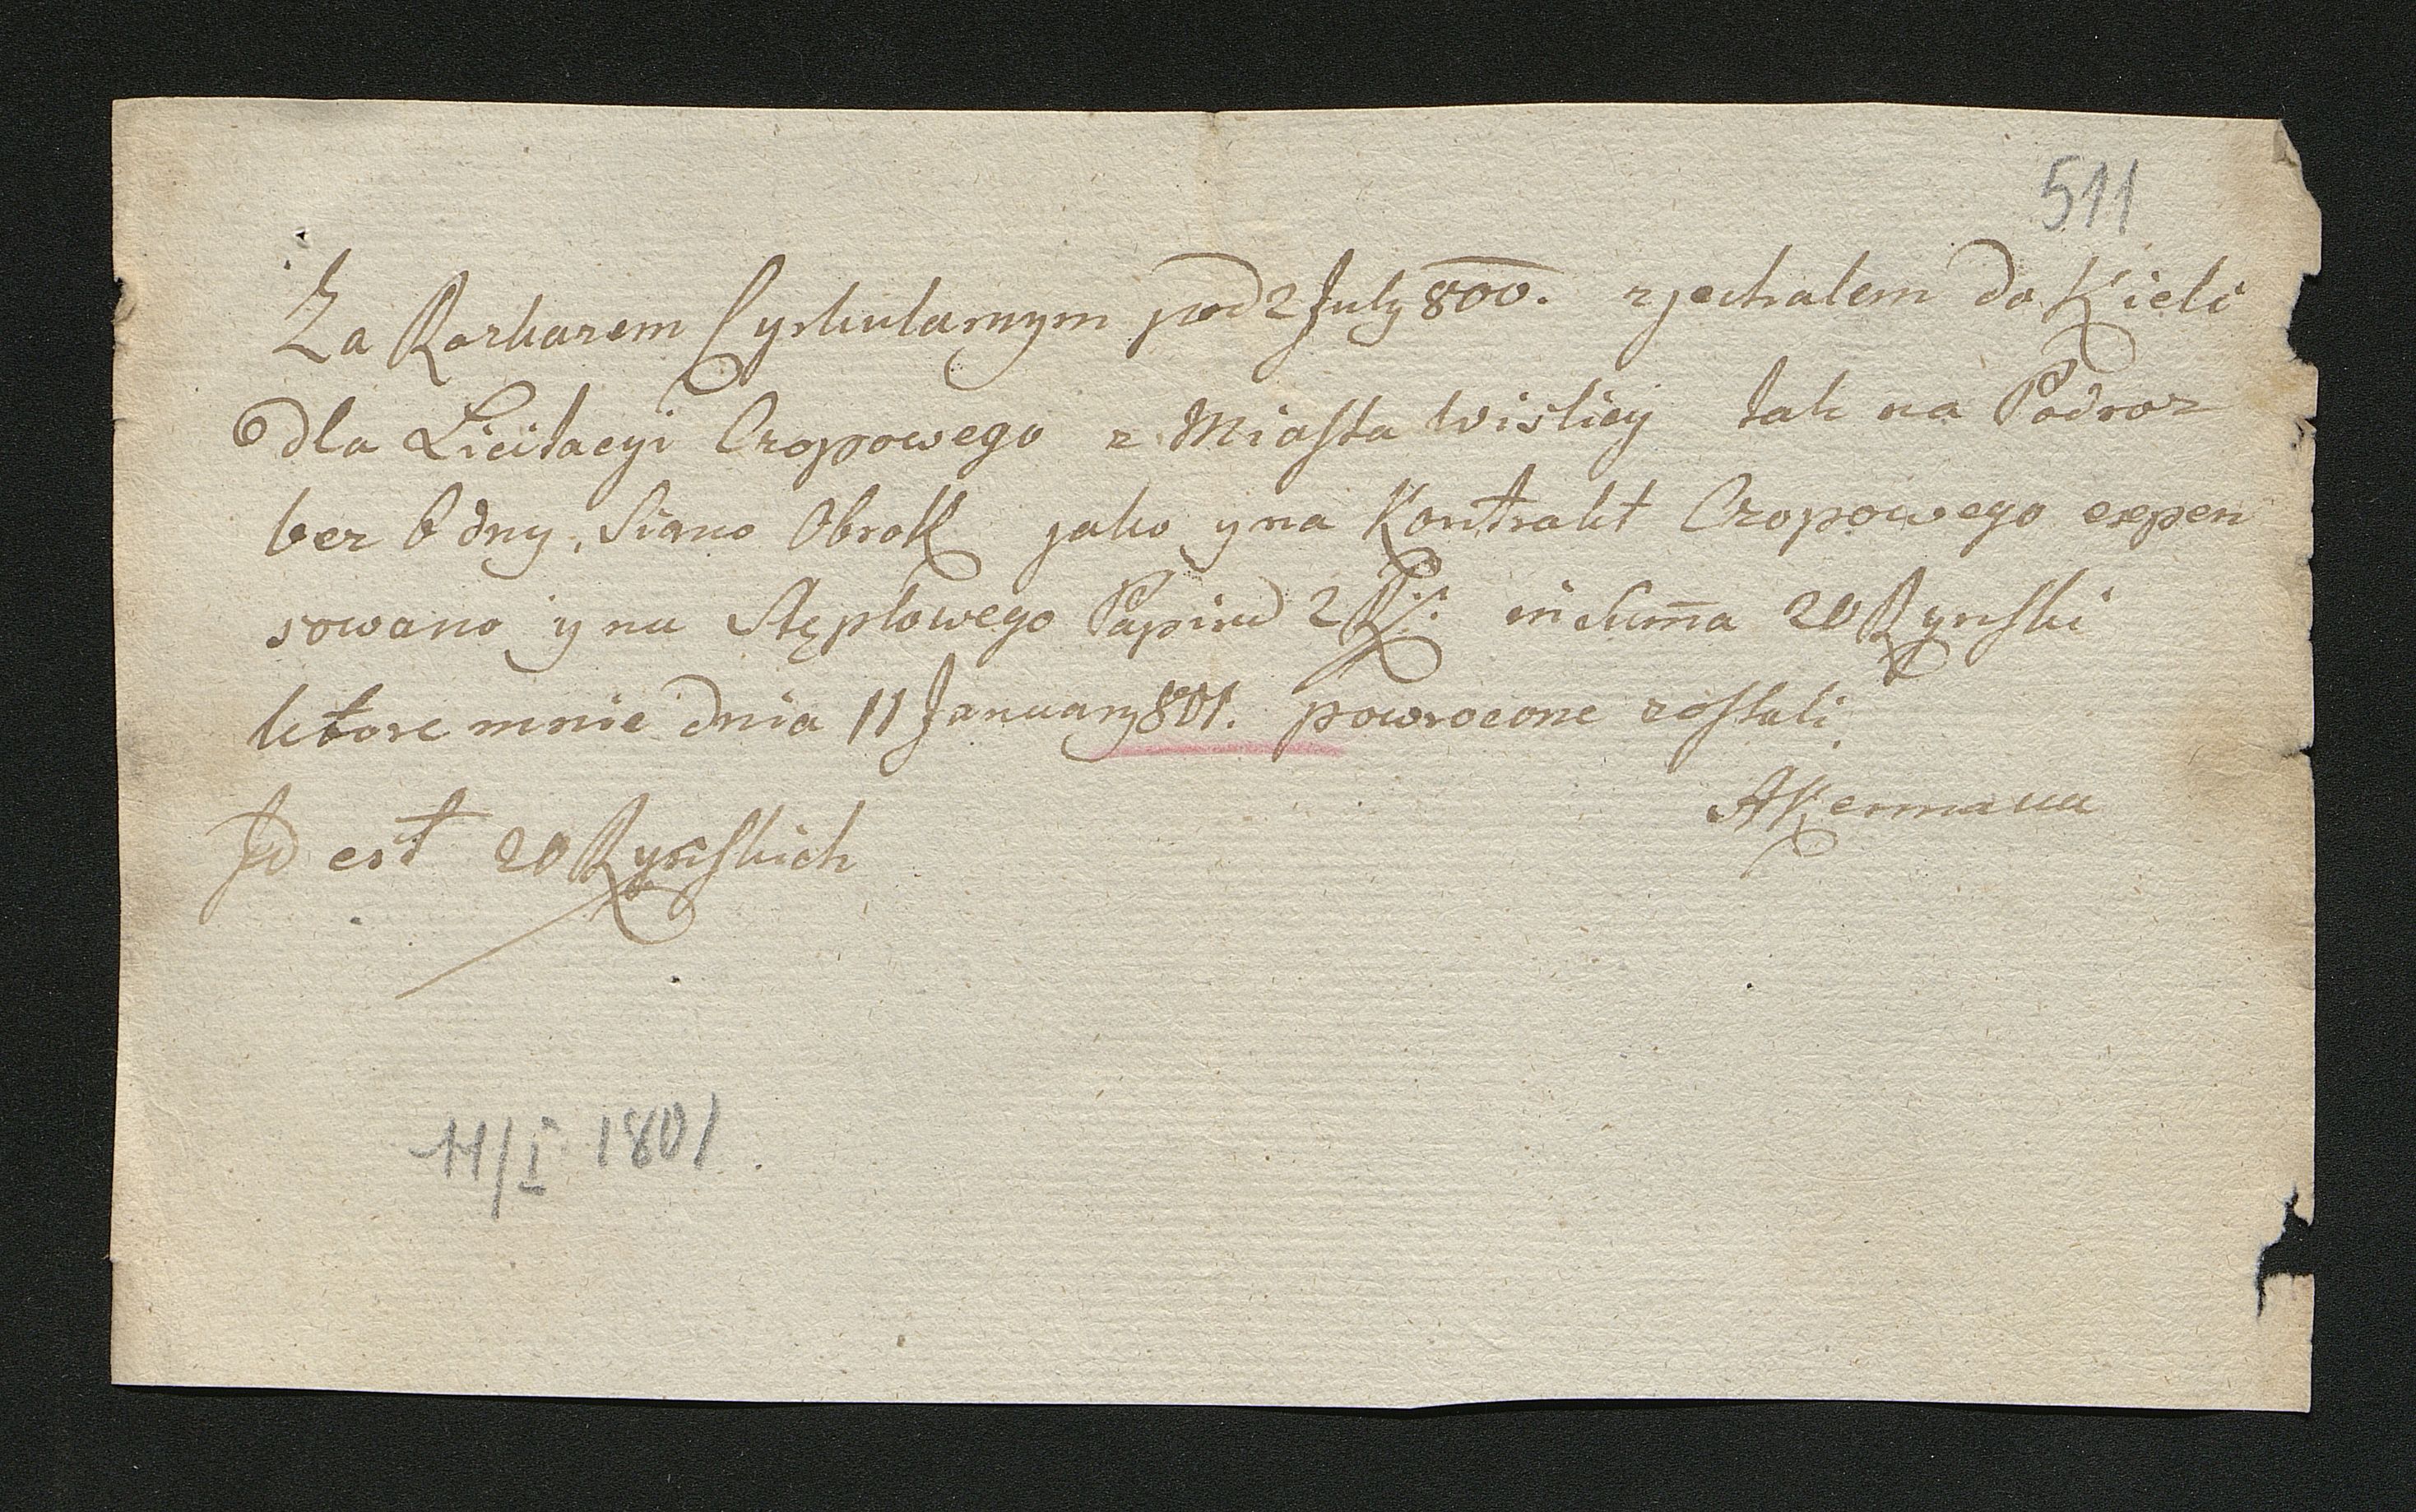 511
Za Rozkazem Cyrkularnym pod 2 July 800. zjechalem do Kielc
dla Licitacyi Czopowego z Miasta Wislicy tak na Podroz
bez 6 dny, Siano Obrok jako y na Kontrakt Czopowego expen
sowano y na Stęplowego Papiru 2 R: in Sum̄a 20 Rynski
ktore mnie dnia 11 January 801. powrocone zostali
Akermann
Jd est 20 Rynskich
11/I 1801.